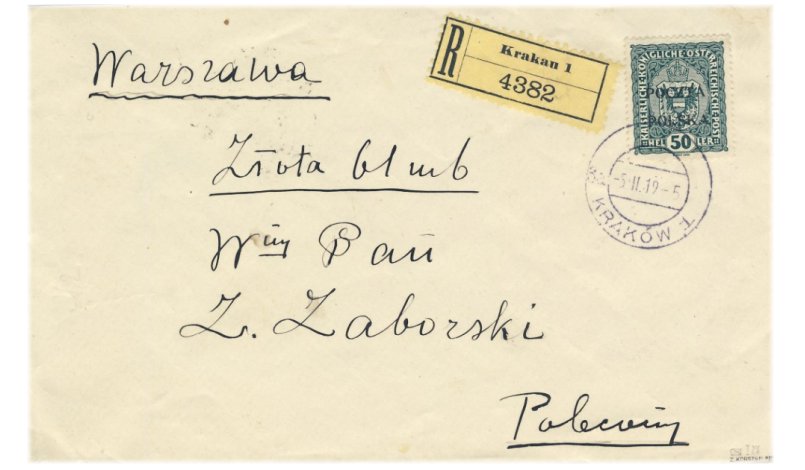 Warszawa
R
Krakau 1
4382
KAISERLICHE·KÖNIGLICHE·ÖSTERREICHISCHE·POST
POCZTA
POLSKA
HELLER 50
-5·II.19-5
KRAKÓW 1
Złota 61 m 6
Wny Pan
Z. Zaborski
Polecony